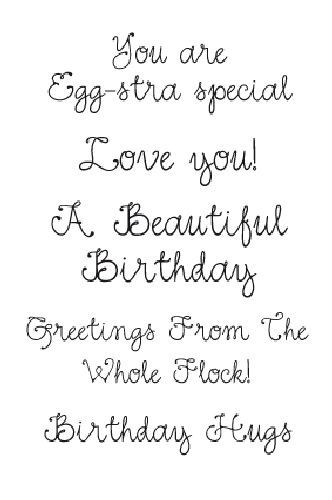 You are
Egg-stra special
Love you!
A Beautiful
Birthday
Greetings From The
Whole Flock!
Birthday Hugs